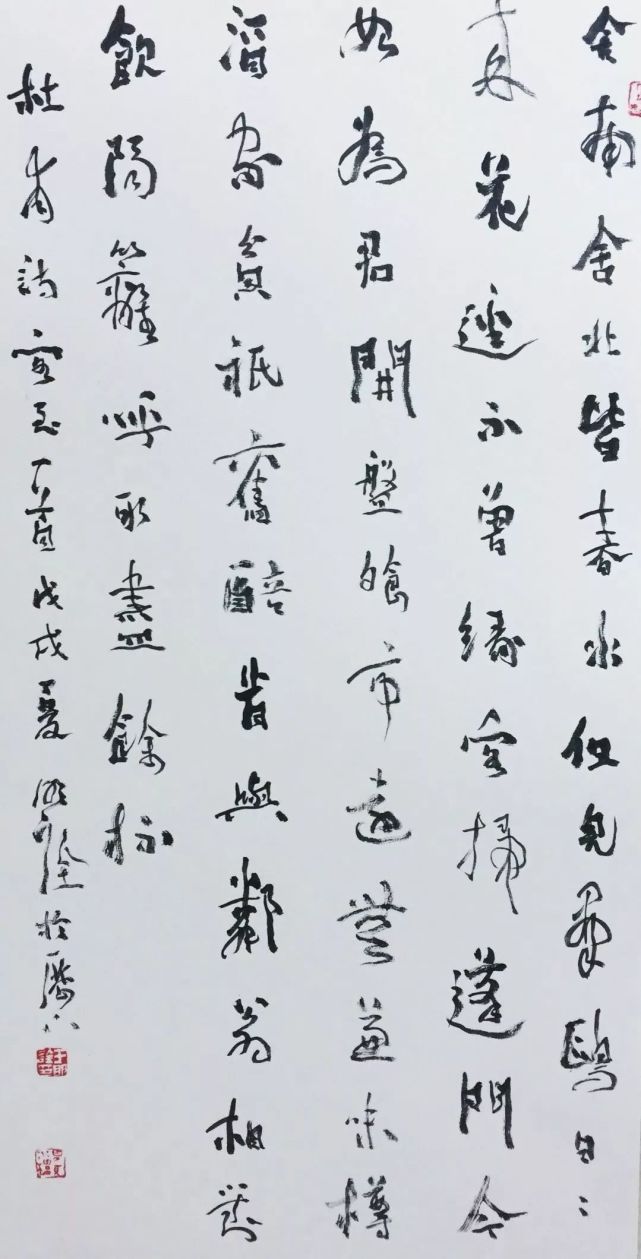 舍南舍北皆春水但見群鷗日〻
來花逕不曾緣客掃蓬門今
始為君開盤飧市遠無兼味樽
酒家貧祇舊醅肯與鄰翁相對
飲隔籬呼取盡餘杯
杜甫詩客至一首戊戌夏於歷下